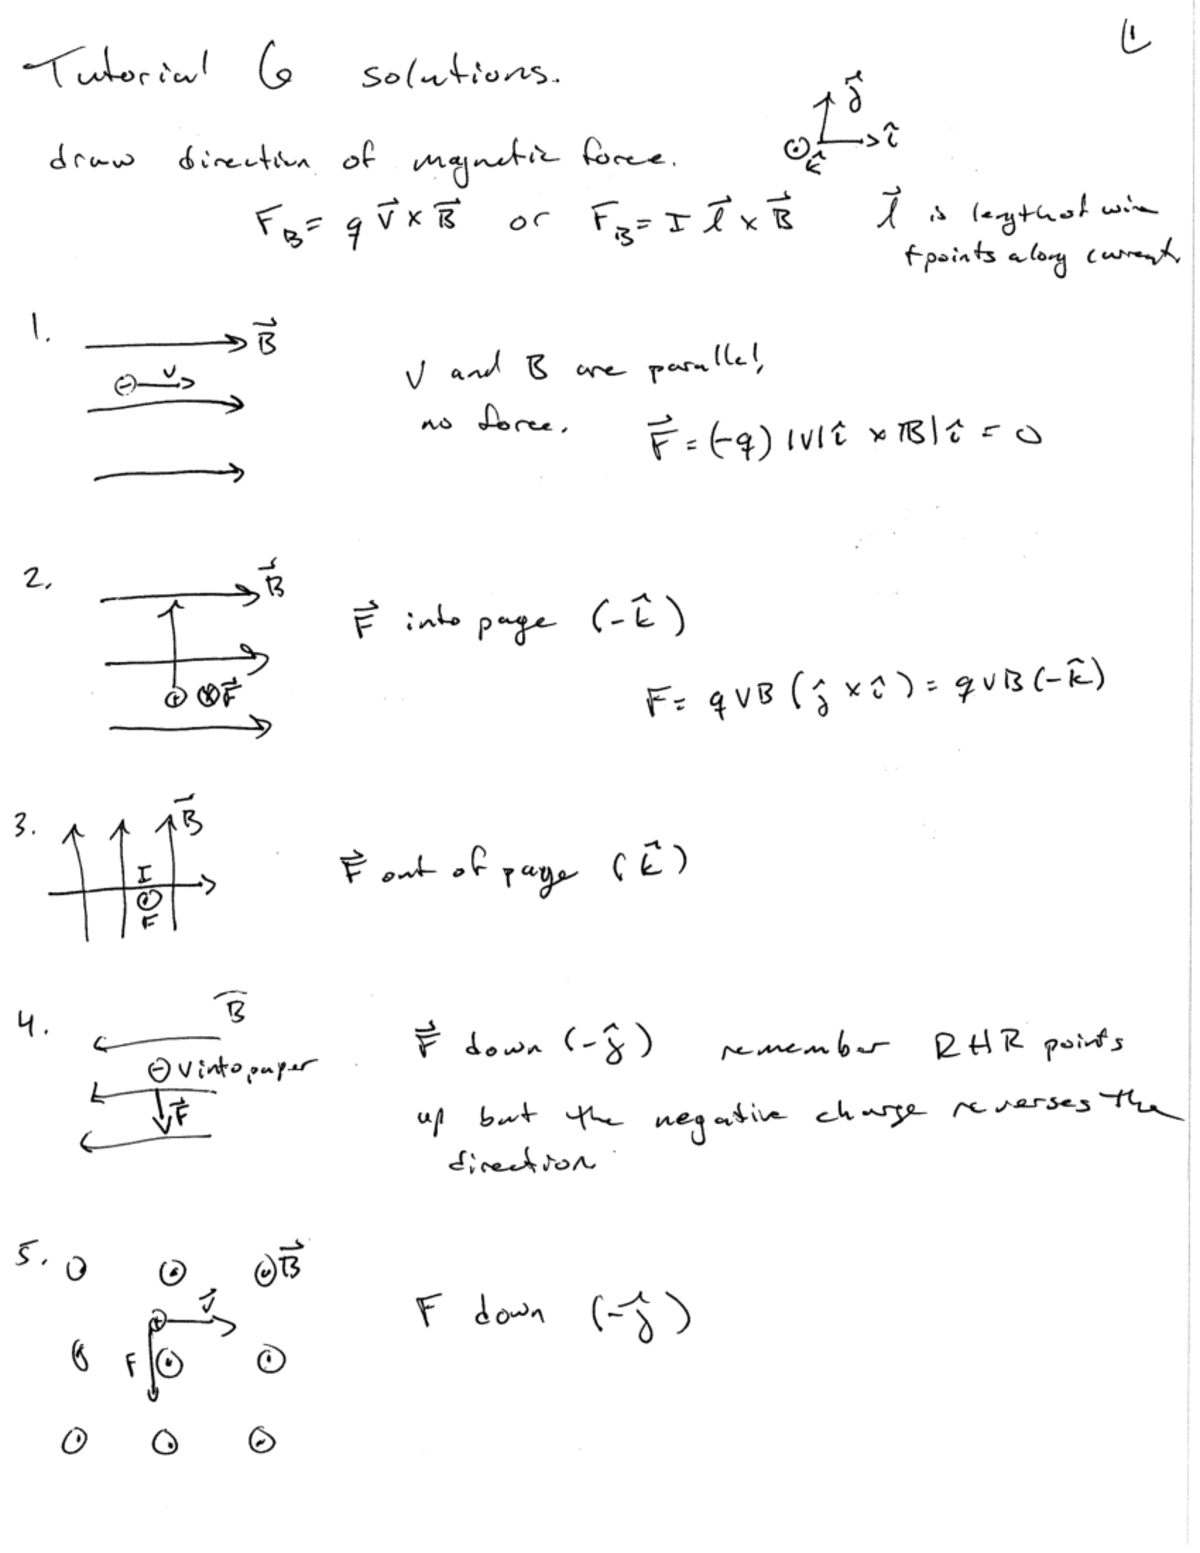 1
Tutorial 6 solutions.
ĵ
î
k̂
draw direction of magnetic force.
F_B = q v⃗ × B⃗ or F_B = I l⃗ × B⃗ l⃗ is length of wire
+ points along current
1.
B⃗
v
V and B are parallel,
no force. F⃗ = (-q) |V| î × |B| î = 0
2.
B⃗
F⃗ into page (-k̂)
+ ⊗ F⃗
F = q V B (ĵ × î) = q V B (-k̂)
3.
B⃗
I
F
F⃗ out of page (k̂)
4.
B
F⃗ down (-ĵ) remember RHR points
- V into paper
F⃗
up but the negative charge reverses the
direction
5.
B⃗
v⃗
F
F down (-ĵ)